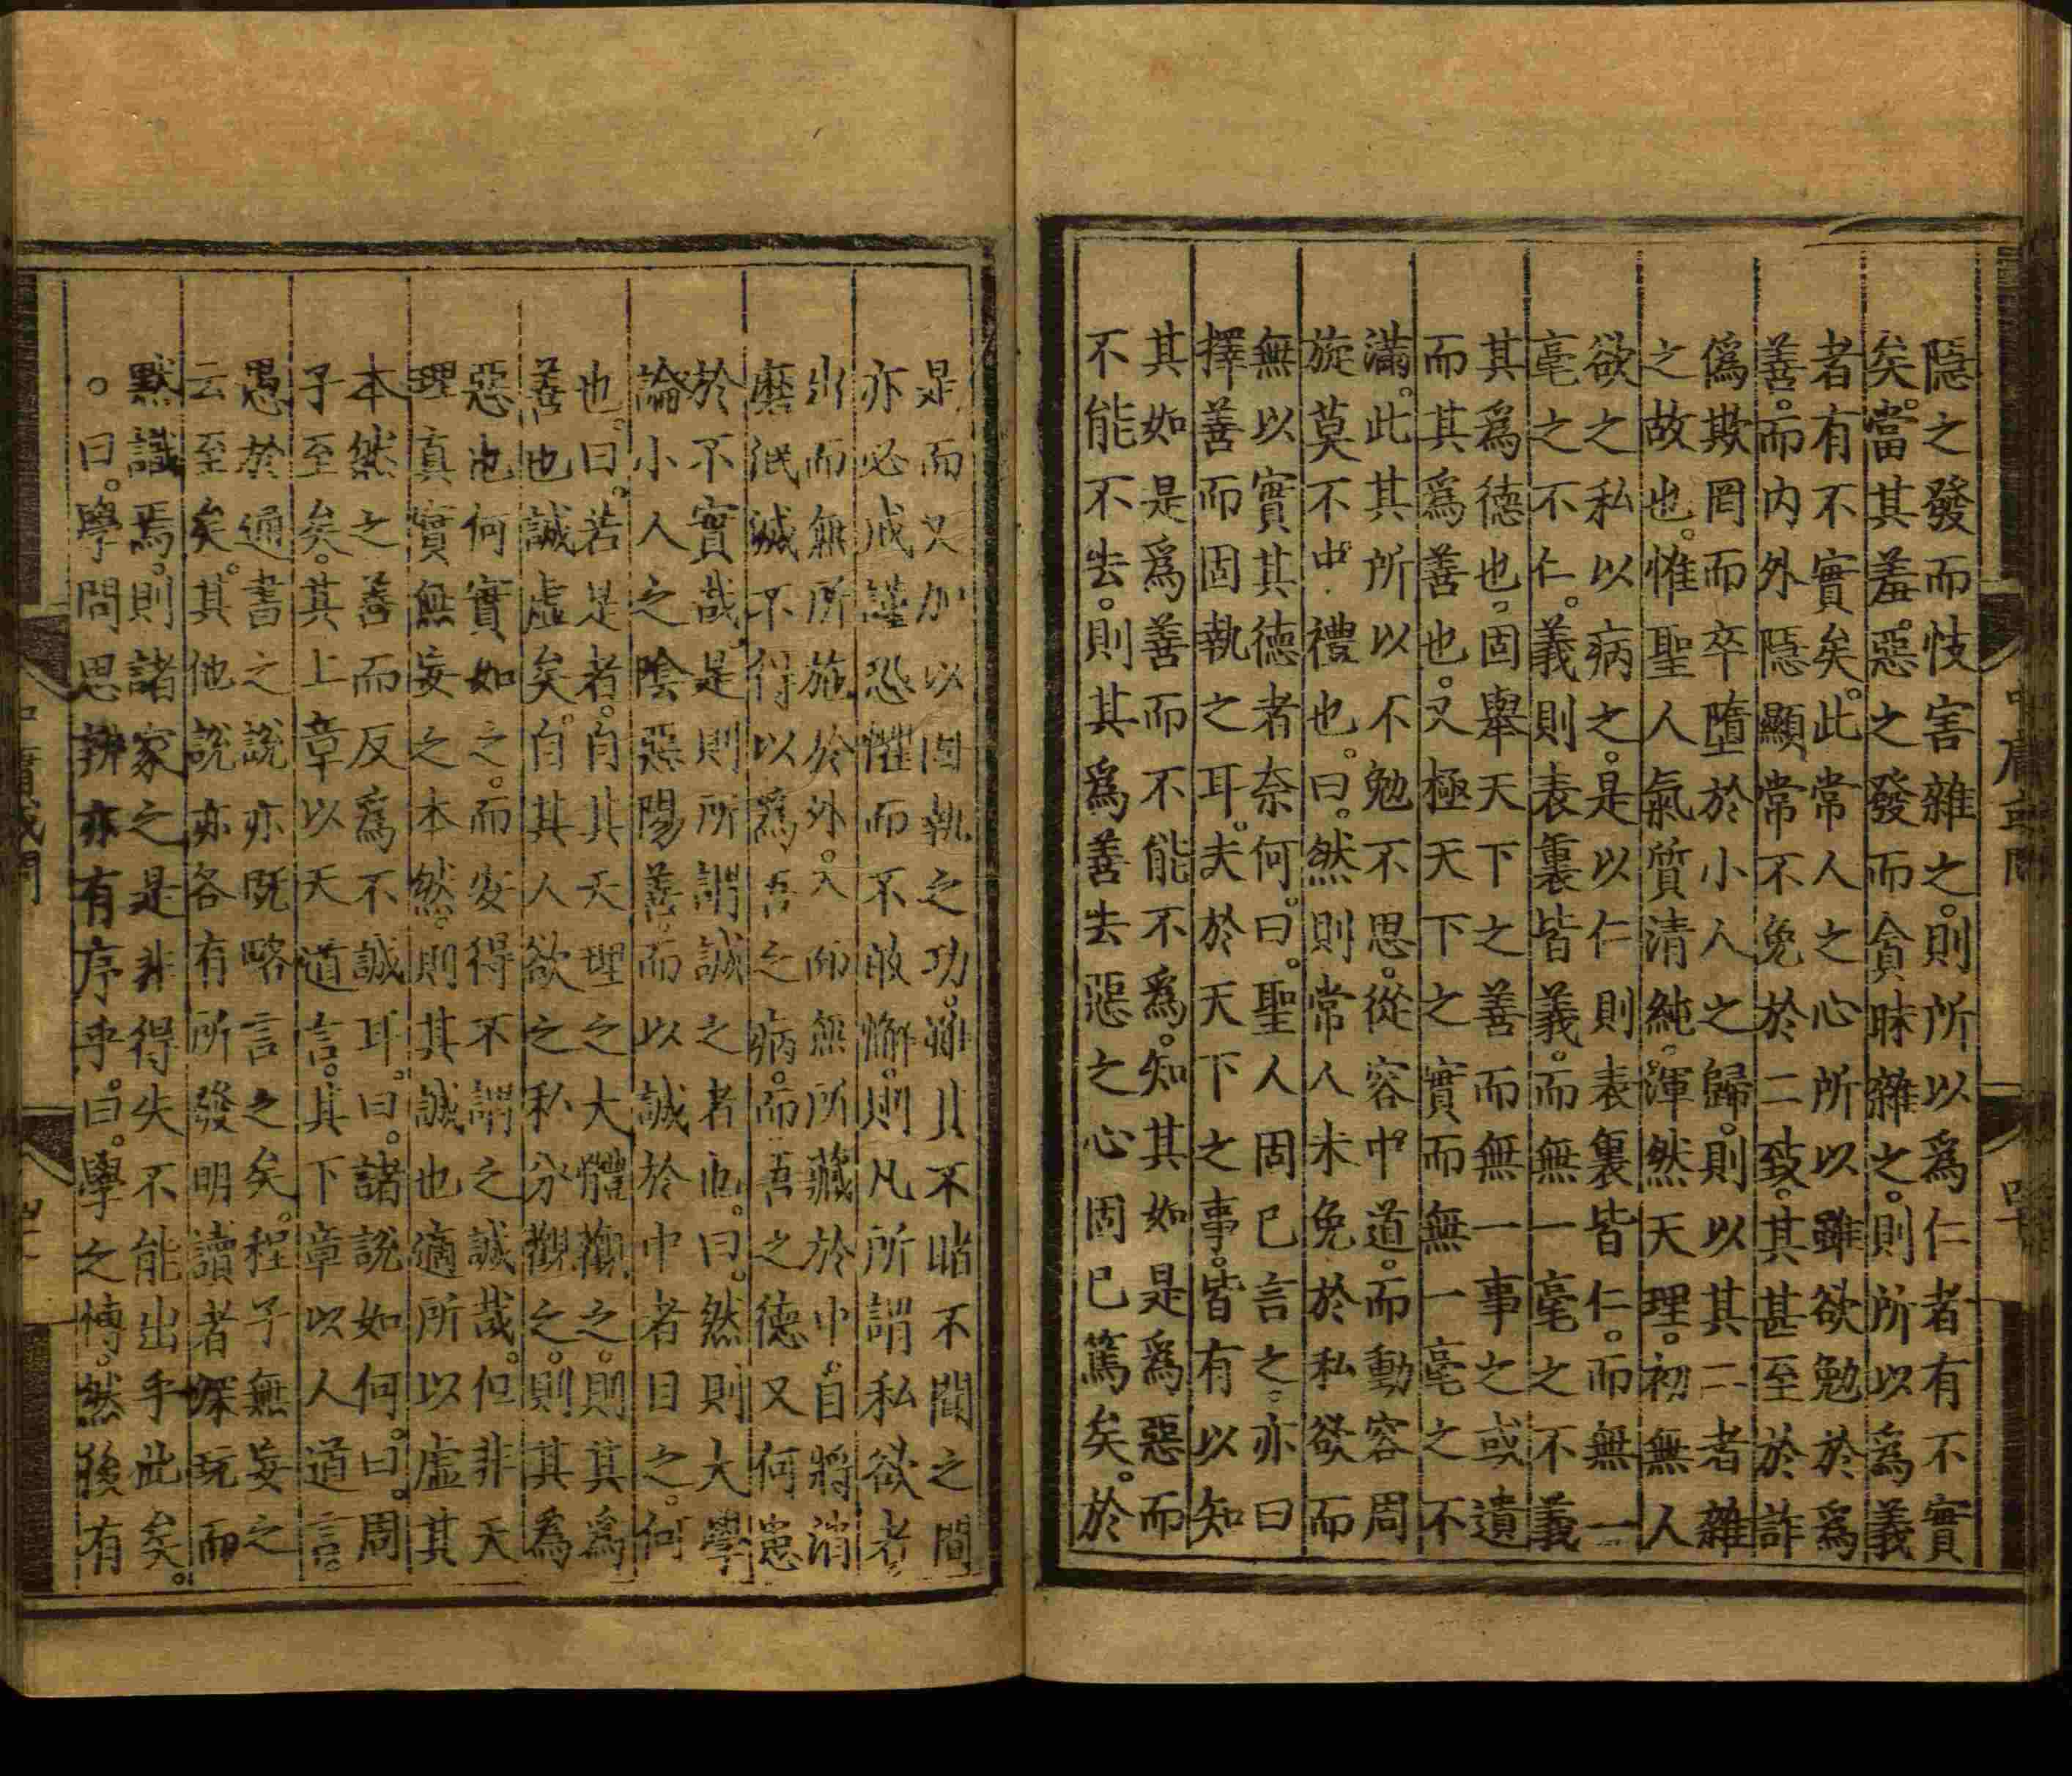 隱之發而忮害雜之。則所以爲仁者有不實
矣。當其羞惡之發而貪昧雜之。則所以為義
者有不實矣。此常人之心所以雖欲勉於爲
善。而内外隱顯常不免於二致。其甚至於詐
僞欺罔而卒墮於小人之歸。則以其二者雜
之故也。惟聖人氣質清純。渾然天理。初無人
欲之私以病之。是以仁則表裏皆仁。而無一
毫之不仁。義則表裏皆義。而無一毫之不義
其爲德也。固舉天下之善而無一事之或遺
而其爲善也。又極天下之實而無一毫之不
滿。此其所以不勉不思。從容中道。而動容周
旋莫不中禮也。曰。然則常人未免於私欲而
無以實其德者奈何。曰。聖人固已言之。亦曰
擇善而固執之耳。夫於天下之事。皆有以知
其如是爲善而不能不爲。知其如是爲惡而
不能不去。則其爲善去惡之心固已篤矣。於
是而又加以固執之功。雖其不睹不聞之間
亦必戒謹恐懼而不敢懈。則凡所謂私欲者
出而無所施於外。入而無所藏於中。自將消
磨泯滅不得以爲吾之病。而吾之德又何患
於不實哉。是則所謂誠之者也。曰。然則大學
論小人之陰惡陽善。而以誠於中者目之。何
也。曰。若是者。自其天理之大體觀之。則其爲
善也誠虛矣。自其人欲之私分觀之。則其為
惡也何實如之。而安得不謂之誠哉。但非天
理真實無妄之本然。則其誠也適所以虛其
本然之善而反爲不誠耳。曰。諸說如何。曰。周
子至矣。其上章以天道言。其下章以人道言。
愚於通書之說亦既略言之矣。程子無妄之
云至矣。其他說亦各有所發明讀者深玩而
默識焉。則諸家之是非得失不能出乎此矣。
○曰。學問思辨亦有序乎。曰。學之博。然後有